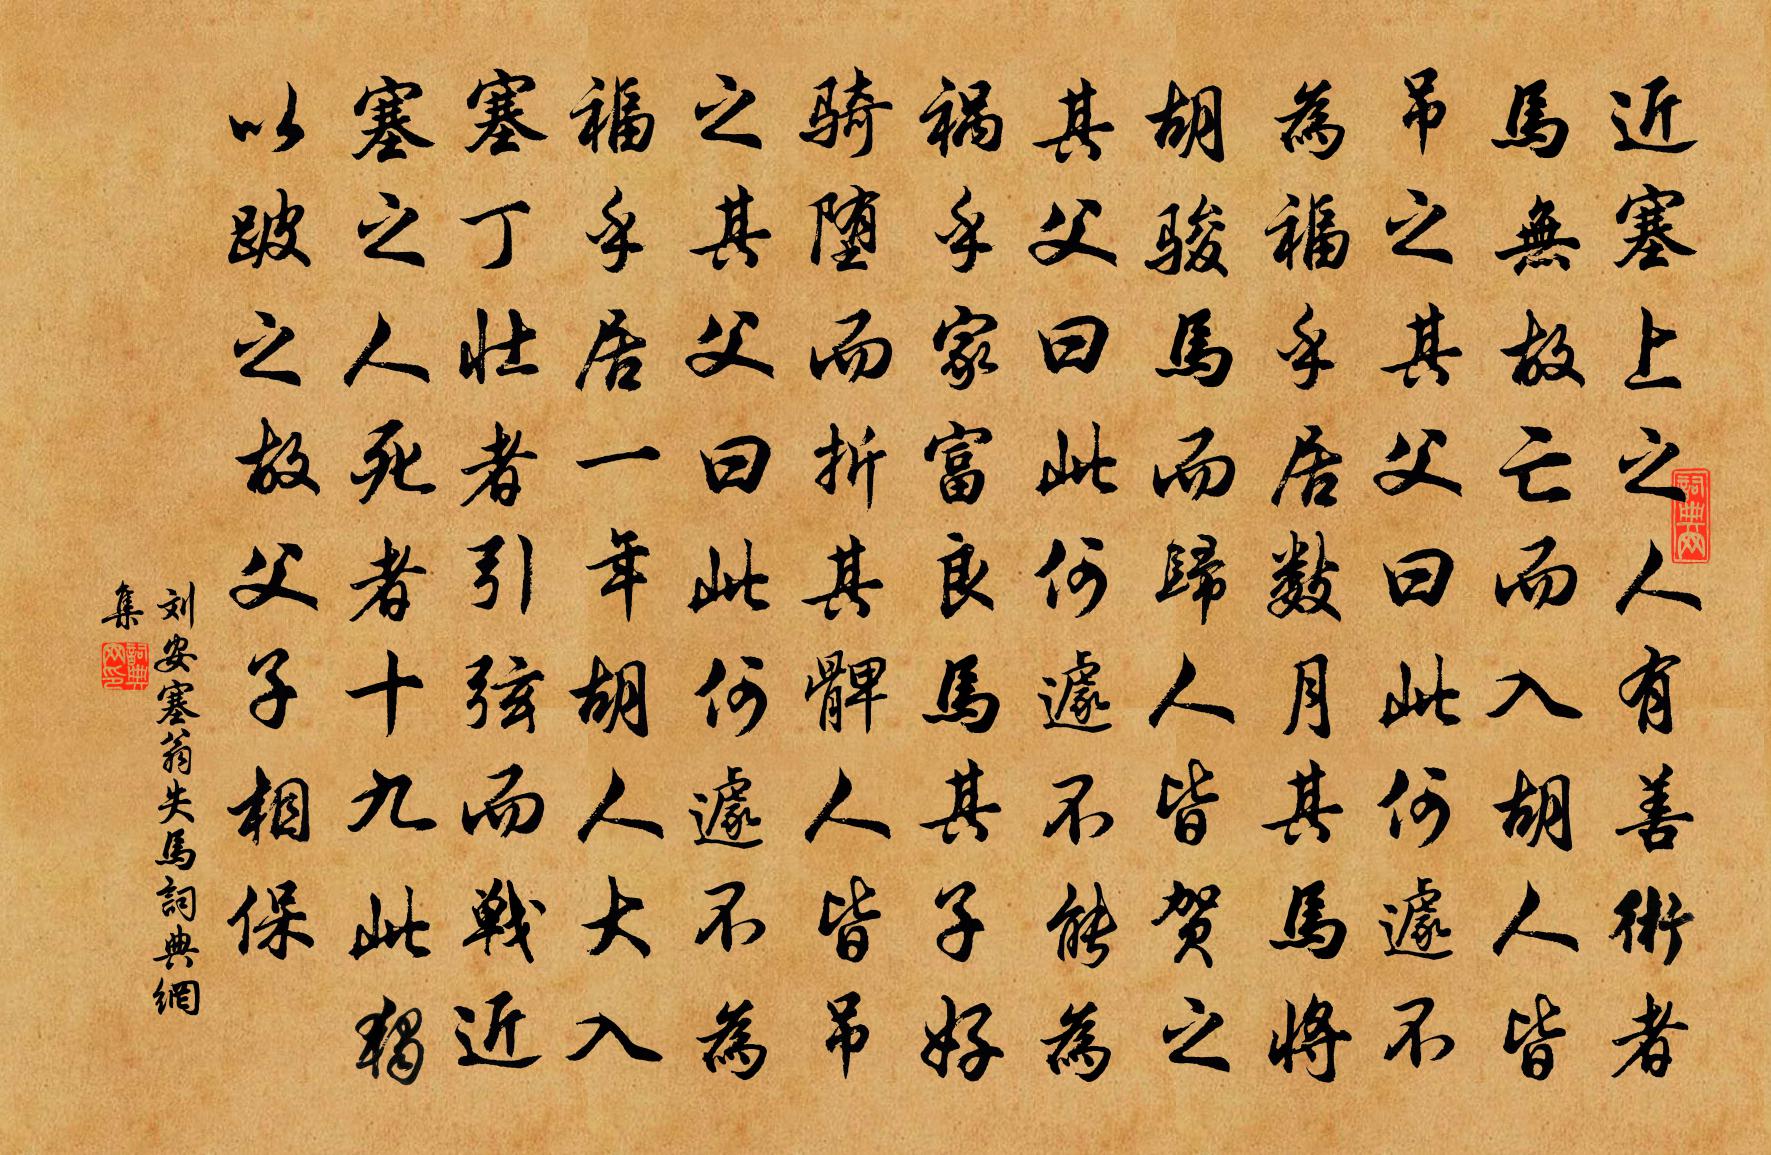 近塞上之人有善術者
馬無故亡而入胡人皆
吊之其父曰此何遽不
為福乎居数月其馬將
胡骏馬而歸人皆贺之
其父曰此何遽不能為
祸乎家富良馬其子好
骑堕而折其髀人皆吊
之其父曰此何遽不為
福乎居一年胡人大入
塞丁壮者引弦而戦近
塞之人死者十九此独
以跛之故父子相保
刘安塞翁失馬詞典網
集
詞典网
詞典网印